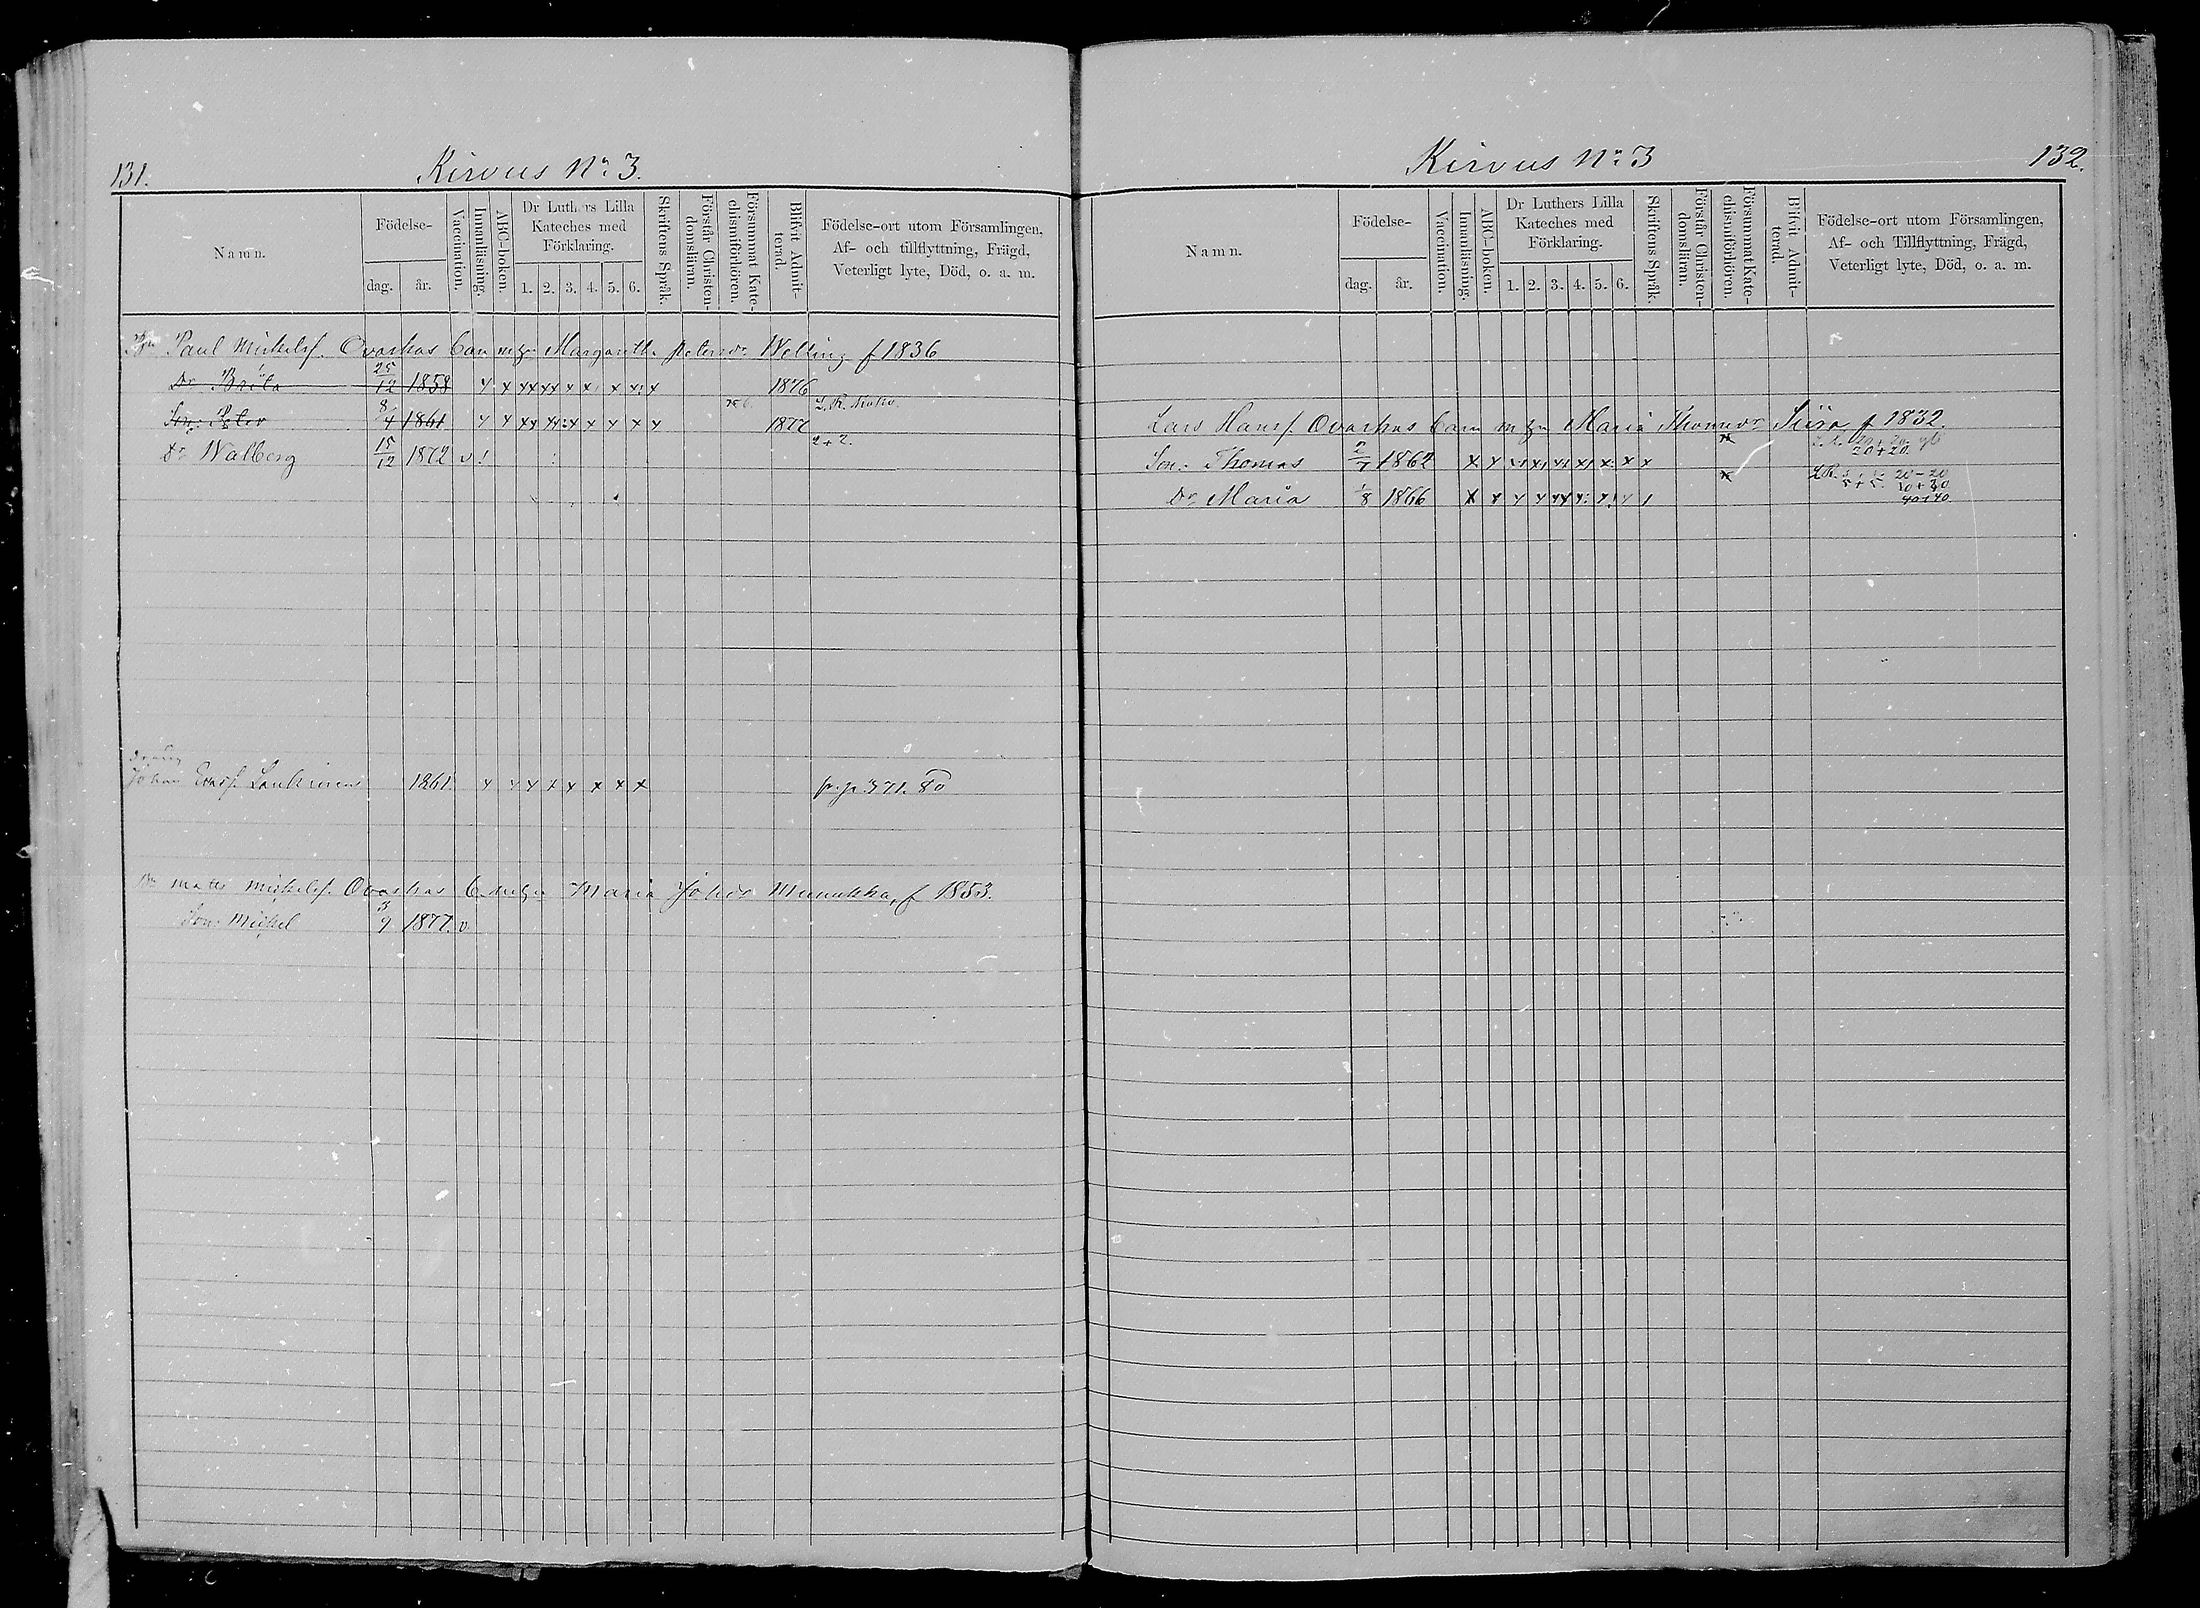 131.
Kirvus No 3.
Namn.
Födelse-
dag.
år.
Vaccination.
Innanläsning.
ABC-boken.
Dr Luthers Lilla
Kateches med
Förklaring.
1. 2. 3. 4. 5. 6.
Skriftens Språk.
Förstår Christen-
domsläran.
Försummat Kate-
chismiförhören.
Blifvit Admit-
terad.
Födelse-ort utom Församlingen,
Af- och tillflyttning, Frägd,
Veterligt lyte, Död, o. a. m.
Paul Michelsf. Ovaskas barn m Margaretha Petersdr Welling f 1836
Dr Brita 25/12 1858 x x xx xx x x x x x 1876
Son: Peter 8/4 1861 x x xx x x x x x x 1877
2+2.
Dr Walberg 15/12 1872 v !
Dräng
Johan 1861. x x x x x x x x fr. p. 371. 80
Matts Michelsf. Ovaskas b. Maria Johsdr Munukka, f 1853.
Son: Michel 3/9 1877. v
Kirvus No 3
132.
Namn.
Födelse-
dag.
år.
Vaccination.
Innanläsning.
ABC-boken.
Dr Luthers Lilla
Kateches med
Förklaring.
1. 2. 3. 4. 5. 6.
Skriftens Språk.
Förstår Christen-
domsläran.
Försummat Kate-
chismiförhören.
Blifvit Admit-
terad.
Födelse-ort utom Församlingen,
Af- och Tillflyttning, Frägd,
Veterligt lyte, Död, o. a. m.
Lars Hansf. Ovaskas barn m Maria Thomasdr Siira f 1832.
20+20
Son: Thomas 2/7 1862 x x x x x x x x x
20-20
10+30
Dr Maria 1/8 1866 x x x x x x x
40+40